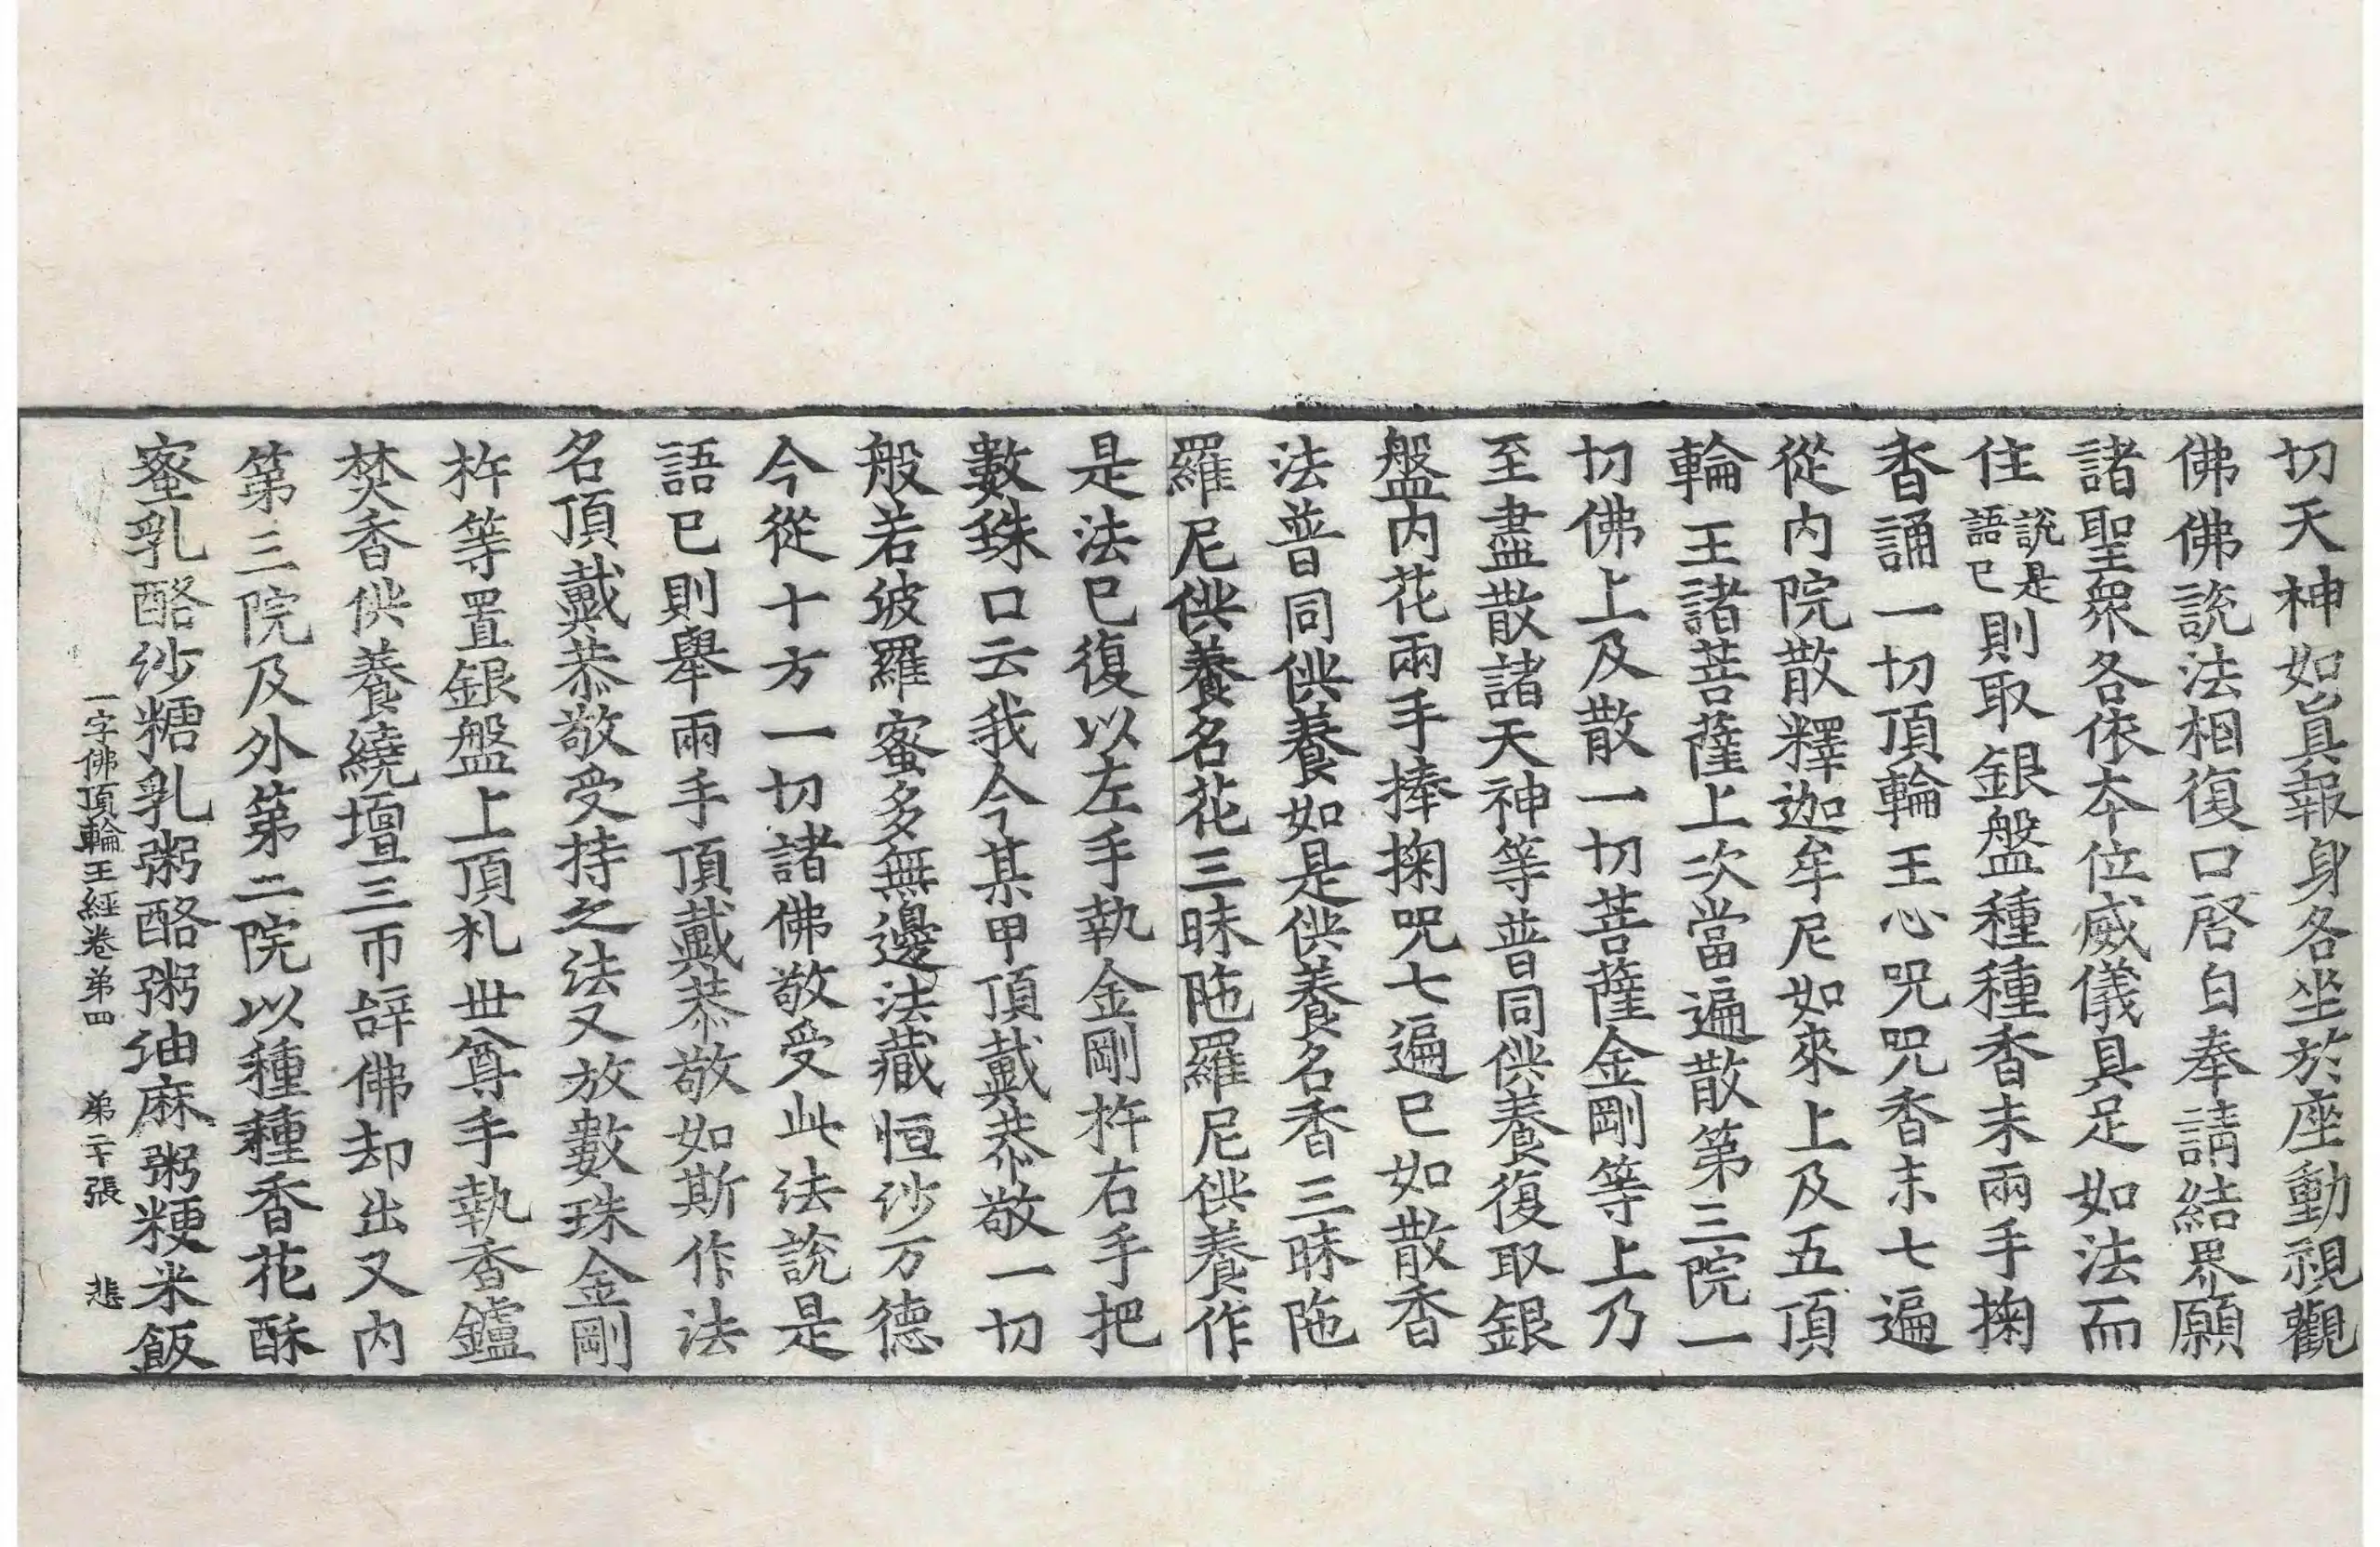 切天神如眞報身各坐於座動視觀
佛佛說法相復口啓白奉請結界願
諸聖衆各依本位威儀具足如法而
住說是語已則取銀盤種種香末兩手掬
香誦一切頂輪王心呪呪香末七遍
從內院散釋迦牟尼如來上及五頂
輪王諸菩薩上次當遍散第三院一
切佛上及散一切菩薩金剛等上乃
至盡散諸天神等普同供養復取銀
盤內花兩手捧掬呪七遍已如散香
法普同供養如是供養名香三昧陁
羅尼供養名花三昧陁羅尼供養作
是法已復以左手執金剛杵右手把
數珠口云我今某甲頂戴恭敬一切
般若波羅蜜多無邊法藏恒沙万德
今從十方一切諸佛敬受此法說是
語已則舉兩手頂戴恭敬如斯作法
名頂戴恭敬受持之法又放數珠金剛
杵等置銀盤上頂礼世尊手執香鑪
焚香供養繞壇三帀辝佛却出又內
第三院及外第二院以種種香花酥
蜜乳酪沙糖乳粥酪粥油麻粥粳米飯
一字佛頂輪王經卷第四　第二十張　悲